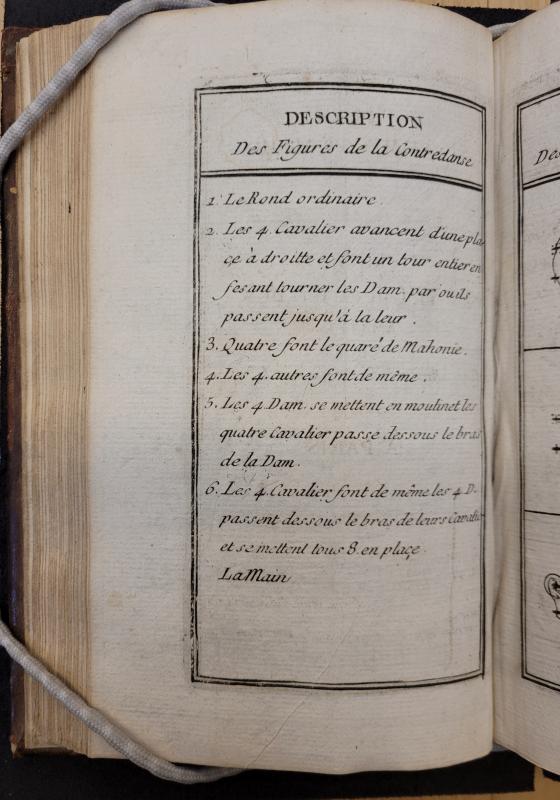 DESCRIPTION
Des Figures de la Contredanse
1. Le Rond ordinaire.
2. Les 4. Cavalier avancent d'une pla-
çe à droitte et font un tour entier en
fesant tourner les Dam. par ou ils
passent jusqu'á la leur.
3. Quatre font le quaré de Mahonie.
4. Les 4. autres font de même.
5. Les 4 Dam. se mettent en moulinet les
quatre Cavalier passe dessous le bras
de la Dam.
6. Les 4. Cavalier font de même les 4 D.
passent dessous le bras de leurs Cavalier
et se mettent tous 8. en plaçe.
La Main